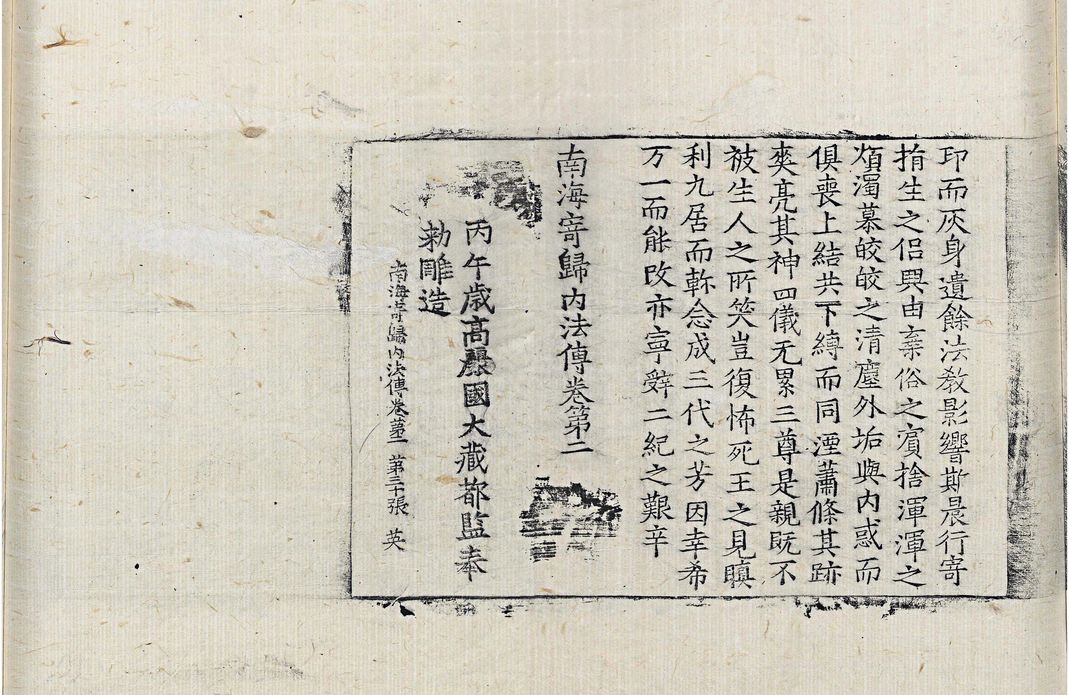 印而灰身遺餘法教影響斯晨行寄
捐生之侣興由棄俗之賓捨渾渾之
煩濁慕皎皎之清塵外垢與内惑而
俱喪上結共下縛而同湮蕭條其跡
爽亮其神四儀无累三尊是親既不
被生人之所笑豈復怖死王之見瞋
利九居而軫念成三代之芳因幸希
万一而能改亦寧辝二紀之艱辛
南海寄歸内法傳卷第二
丙午歳高麗國大藏都監奉
勑雕造
南海寄歸内法傳卷第二 第三十張 英